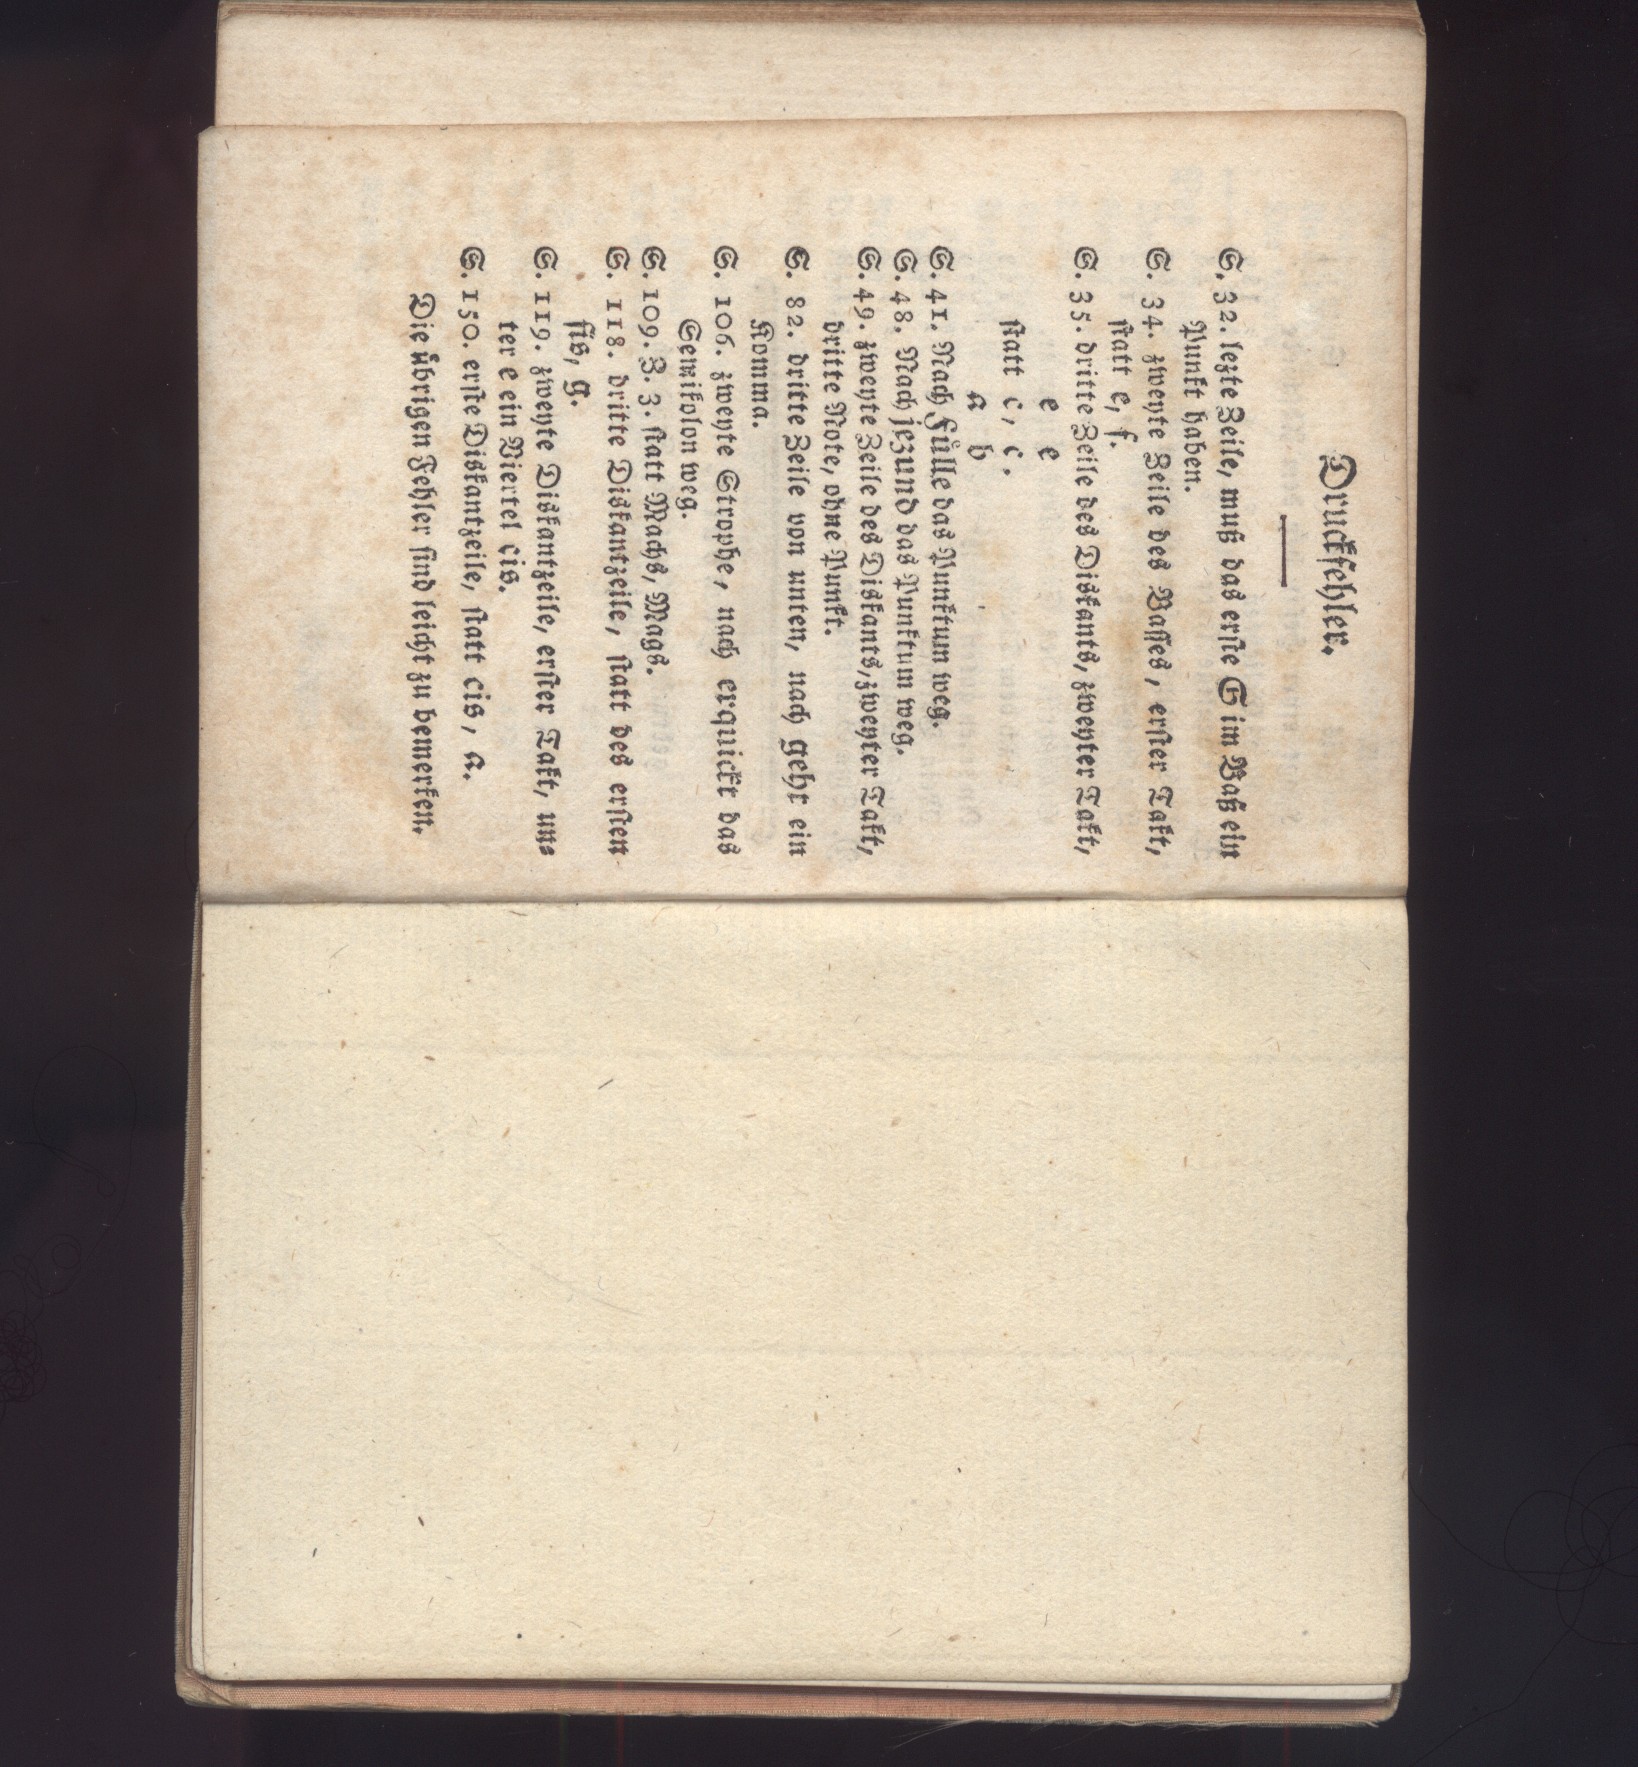 Druckfehler.
S. 32. lezte Zeile, muß das erste G im Baß ein
Punkt haben.
S. 34. zweyte Zeile des Basses, erster Takt,
statt e, f.
S. 35. dritte Zeile des Diskants, zweyter Takt,
e e
statt c, c.
a b
S. 41. Nach Fülle das Punktum weg.
S. 48. Nach jezund das Punktum weg.
S. 49. zweyte Zeile des Diskants, zweyter Takt,
dritte Note, ohne Punkt.
S. 82. dritte Zeile von unten, nach geht ein
Komma.
S. 106. zweyte Strophe, nach erquickt das
Semikolon weg.
S. 109. Z. 3. statt Machs, Mags.
S. 118. dritte Diskantzeile, statt des ersten
fis, g.
S. 119. zweyte Diskantzeile, erster Takt, un-
ter e ein Viertel cis.
S. 150. erste Diskantzeile, statt cis, a.
Die übrigen Fehler sind leicht zu bemerken.